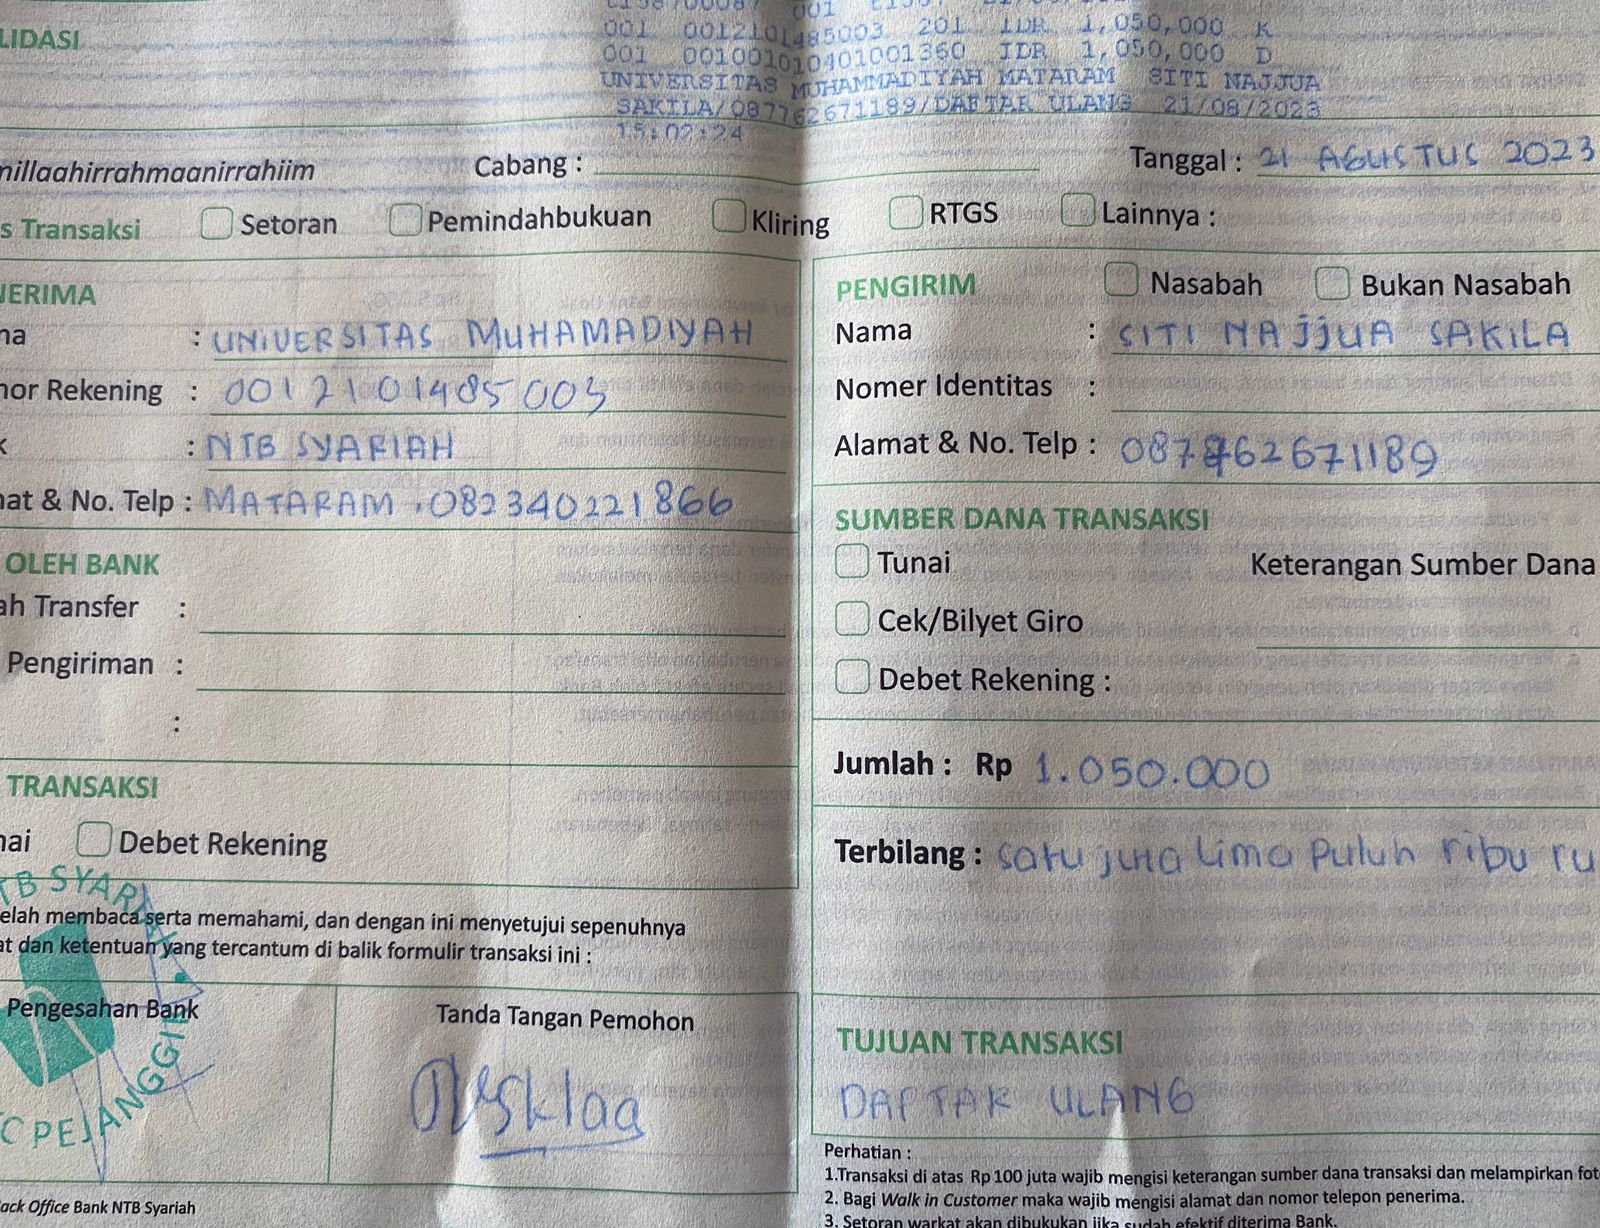 LIDASI
001 0012101485003 201 IDR 1,050,000 K
001 001001010401001360 IDR 1,050,000 D
UNIVERSITAS MUHAMMADIYAH MATARAM SITI NAJJUA
SAKILA/087762671189/DAFTAR ULANG 21/08/2023
15:02:24
millaahirrahmaanirrahiim Cabang : Tanggal : 21 AGUSTUS 2023
s Transaksi Setoran Pemindahbukuan Kliring RTGS Lainnya :
NERIMA
ma : UNIVERSITAS MUHAMADIYAH
mor Rekening : 0012101485003
k : NTB SYARIAH
mat & No. Telp : MATARAM . 082340221866
PENGIRIM Nasabah Bukan Nasabah
Nama : SITI NAJJUA SAKILA
Nomer Identitas :
Alamat & No. Telp : 087762671189
OLEH BANK
ah Transfer :
Pengiriman :
:
SUMBER DANA TRANSAKSI
Tunai Keterangan Sumber Dana
Cek/Bilyet Giro
Debet Rekening :
TRANSAKSI
nai Debet Rekening
Jumlah : Rp 1.050.000
Terbilang : satu juta lima puluh ribu ru
elah membaca serta memahami, dan dengan ini menyetujui sepenuhnya
at dan ketentuan yang tercantum di balik formulir transaksi ini :
Pengesahan Bank Tanda Tangan Pemohon
TB SYARIAH
C PEJANGGIK
TUJUAN TRANSAKSI
DAFTAR ULANG
Perhatian :
1.Transaksi di atas Rp 100 juta wajib mengisi keterangan sumber dana transaksi dan melampirkan fot
2. Bagi Walk in Customer maka wajib mengisi alamat dan nomor telepon penerima.
3. Setoran warkat akan dibukukan jika sudah efektif diterima Bank.
ack Office Bank NTB Syariah